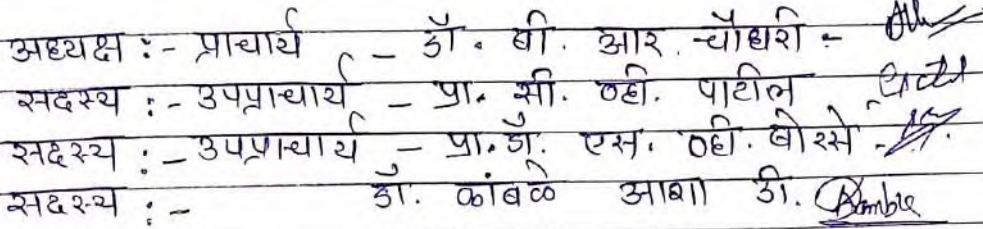 अध्यक्ष :- प्राचार्य - डॉ. बी. आर. चौधरी -
सदस्य :- उपप्राचार्य - प्रा. सी. व्ही. पाटील
सदस्य :- उपप्राचार्य - प्रा. डॉ. एस. व्ही. बोरसे -
सदस्य :- डॉ. कांबळे आशा डी.